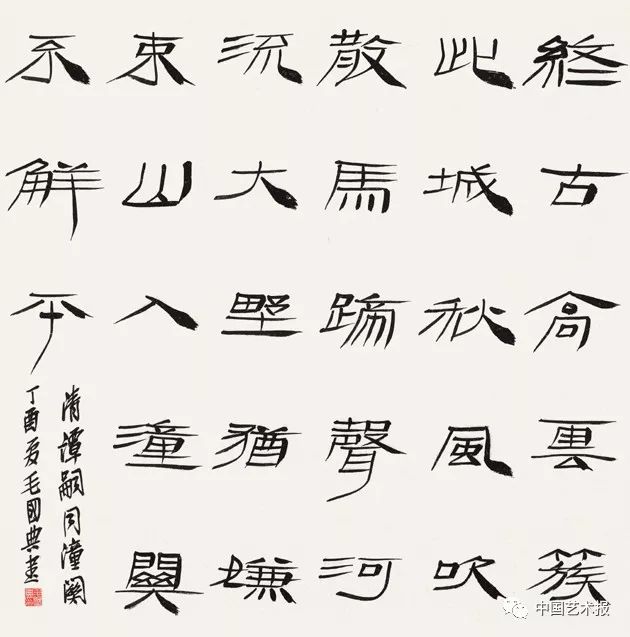 終古高雲簇
此城秋風吹
散馬蹄聲河
流大野猶嫌
束山入潼關
不解平
清譚嗣同潼關
丁酉夏毛國典書
中国艺术报